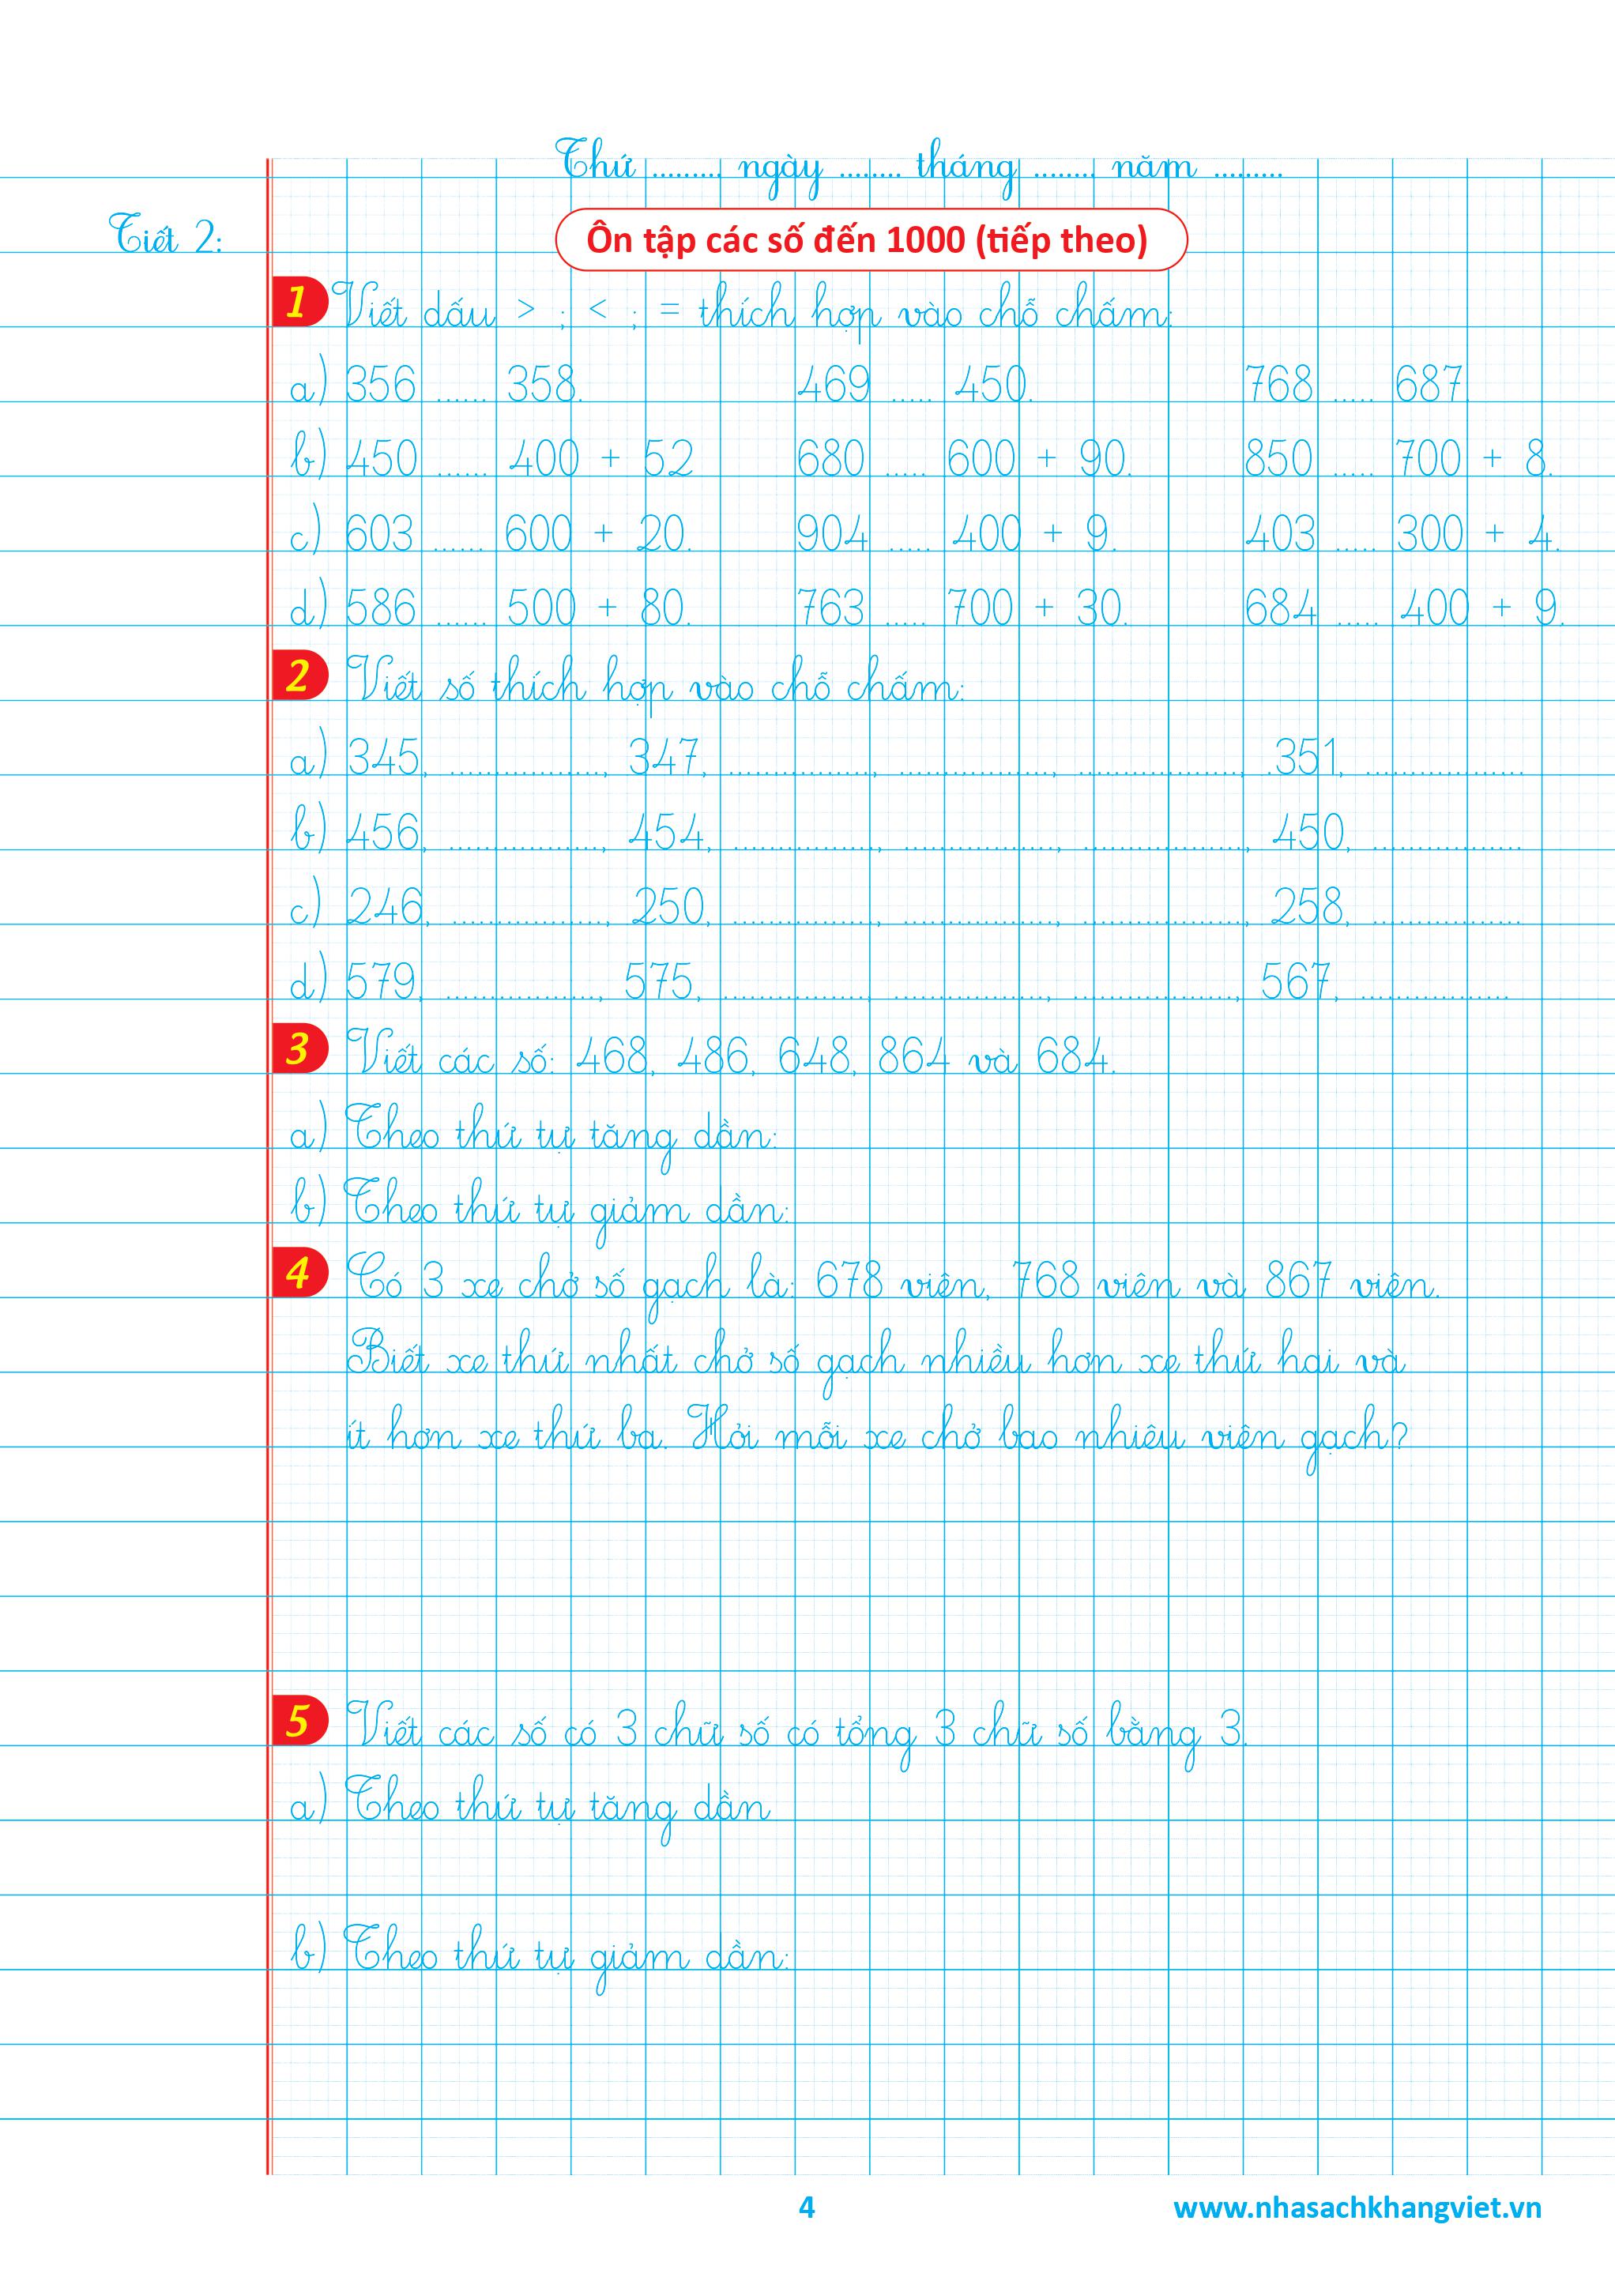 Thứ ......... ngày ........ tháng ........ năm .........
Tiết 2:
Ôn tập các số đến 1000 (tiếp theo)
1 Viết dấu > ; < ; = thích hợp vào chỗ chấm:
a) 356 ...... 358. 469 ..... 450. 768 ..... 687.
b) 450 ...... 400 + 52 680 ..... 600 + 90. 850 ..... 700 + 8.
c) 603 ...... 600 + 20. 904 ..... 400 + 9. 403 ..... 300 + 4.
d) 586 ...... 500 + 80. 763 ..... 700 + 30. 684 ..... 400 + 9.
2 Viết số thích hợp vào chỗ chấm:
a) 345, ................., 347, ................, ................., .................., .351, ..................
b) 456, ................., 454, ................, ................., .................., 450, .................
c) 246, ................., 250, ................, ................., .................., 258, .................
d) 579, ................., 575, ................, ................., .................., 567, .................
3 Viết các số: 468, 486, 648, 864 và 684.
a) Theo thứ tự tăng dần:
b) Theo thứ tự giảm dần:
4 Có 3 xe chở số gạch là: 678 viên, 768 viên và 867 viên.
Biết xe thứ nhất chở số gạch nhiều hơn xe thứ hai và
ít hơn xe thứ ba. Hỏi mỗi xe chở bao nhiêu viên gạch?
5 Viết các số có 3 chữ số có tổng 3 chữ số bằng 3.
a) Theo thứ tự tăng dần
b) Theo thứ tự giảm dần:
4
www.nhasachkhangviet.vn